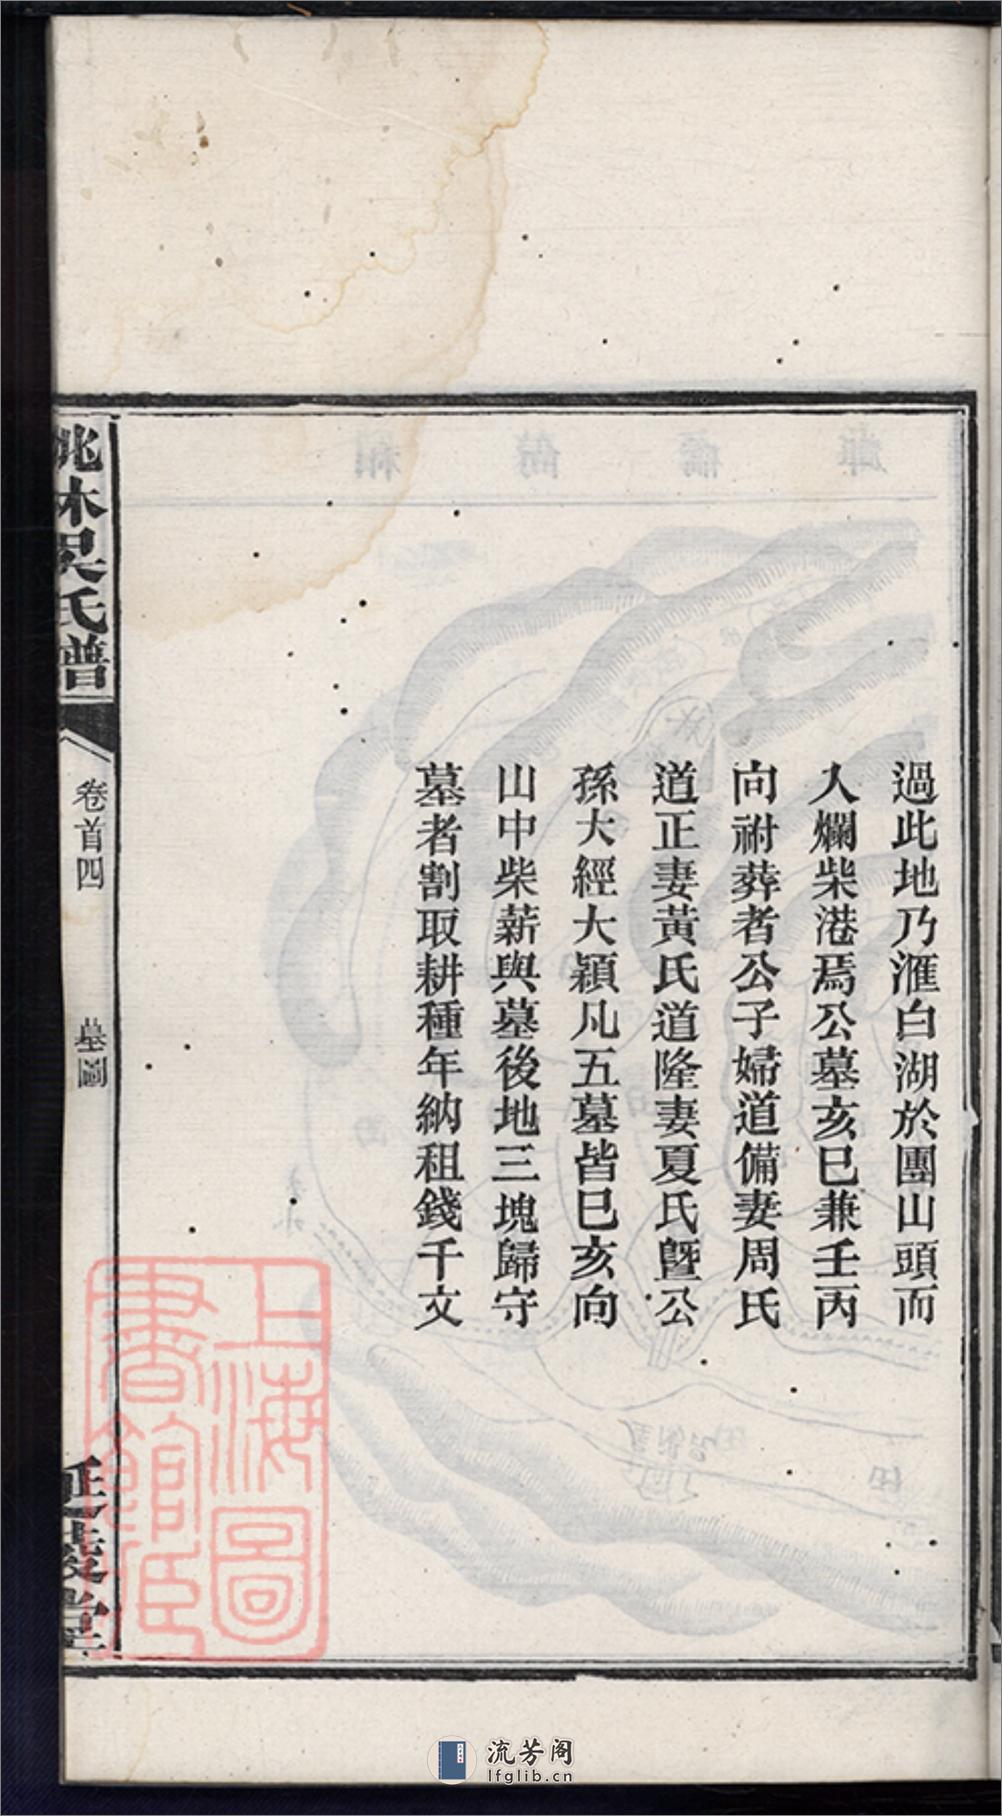 過此地乃滙白湖於團山頭而
入爛柴港焉公墓亥巳兼壬丙
向祔葬者公子婦道備妻周氏
道正妻黃氏道隆妻夏氏曁公
孫大經大穎凡五墓皆巳亥向
山中柴薪與墓後地三塊歸守
墓者割取耕種年納租錢千文
姚林吳氏譜
卷首四
墓圖
上海圖
書館臧
流芳阁
lfglib.cn